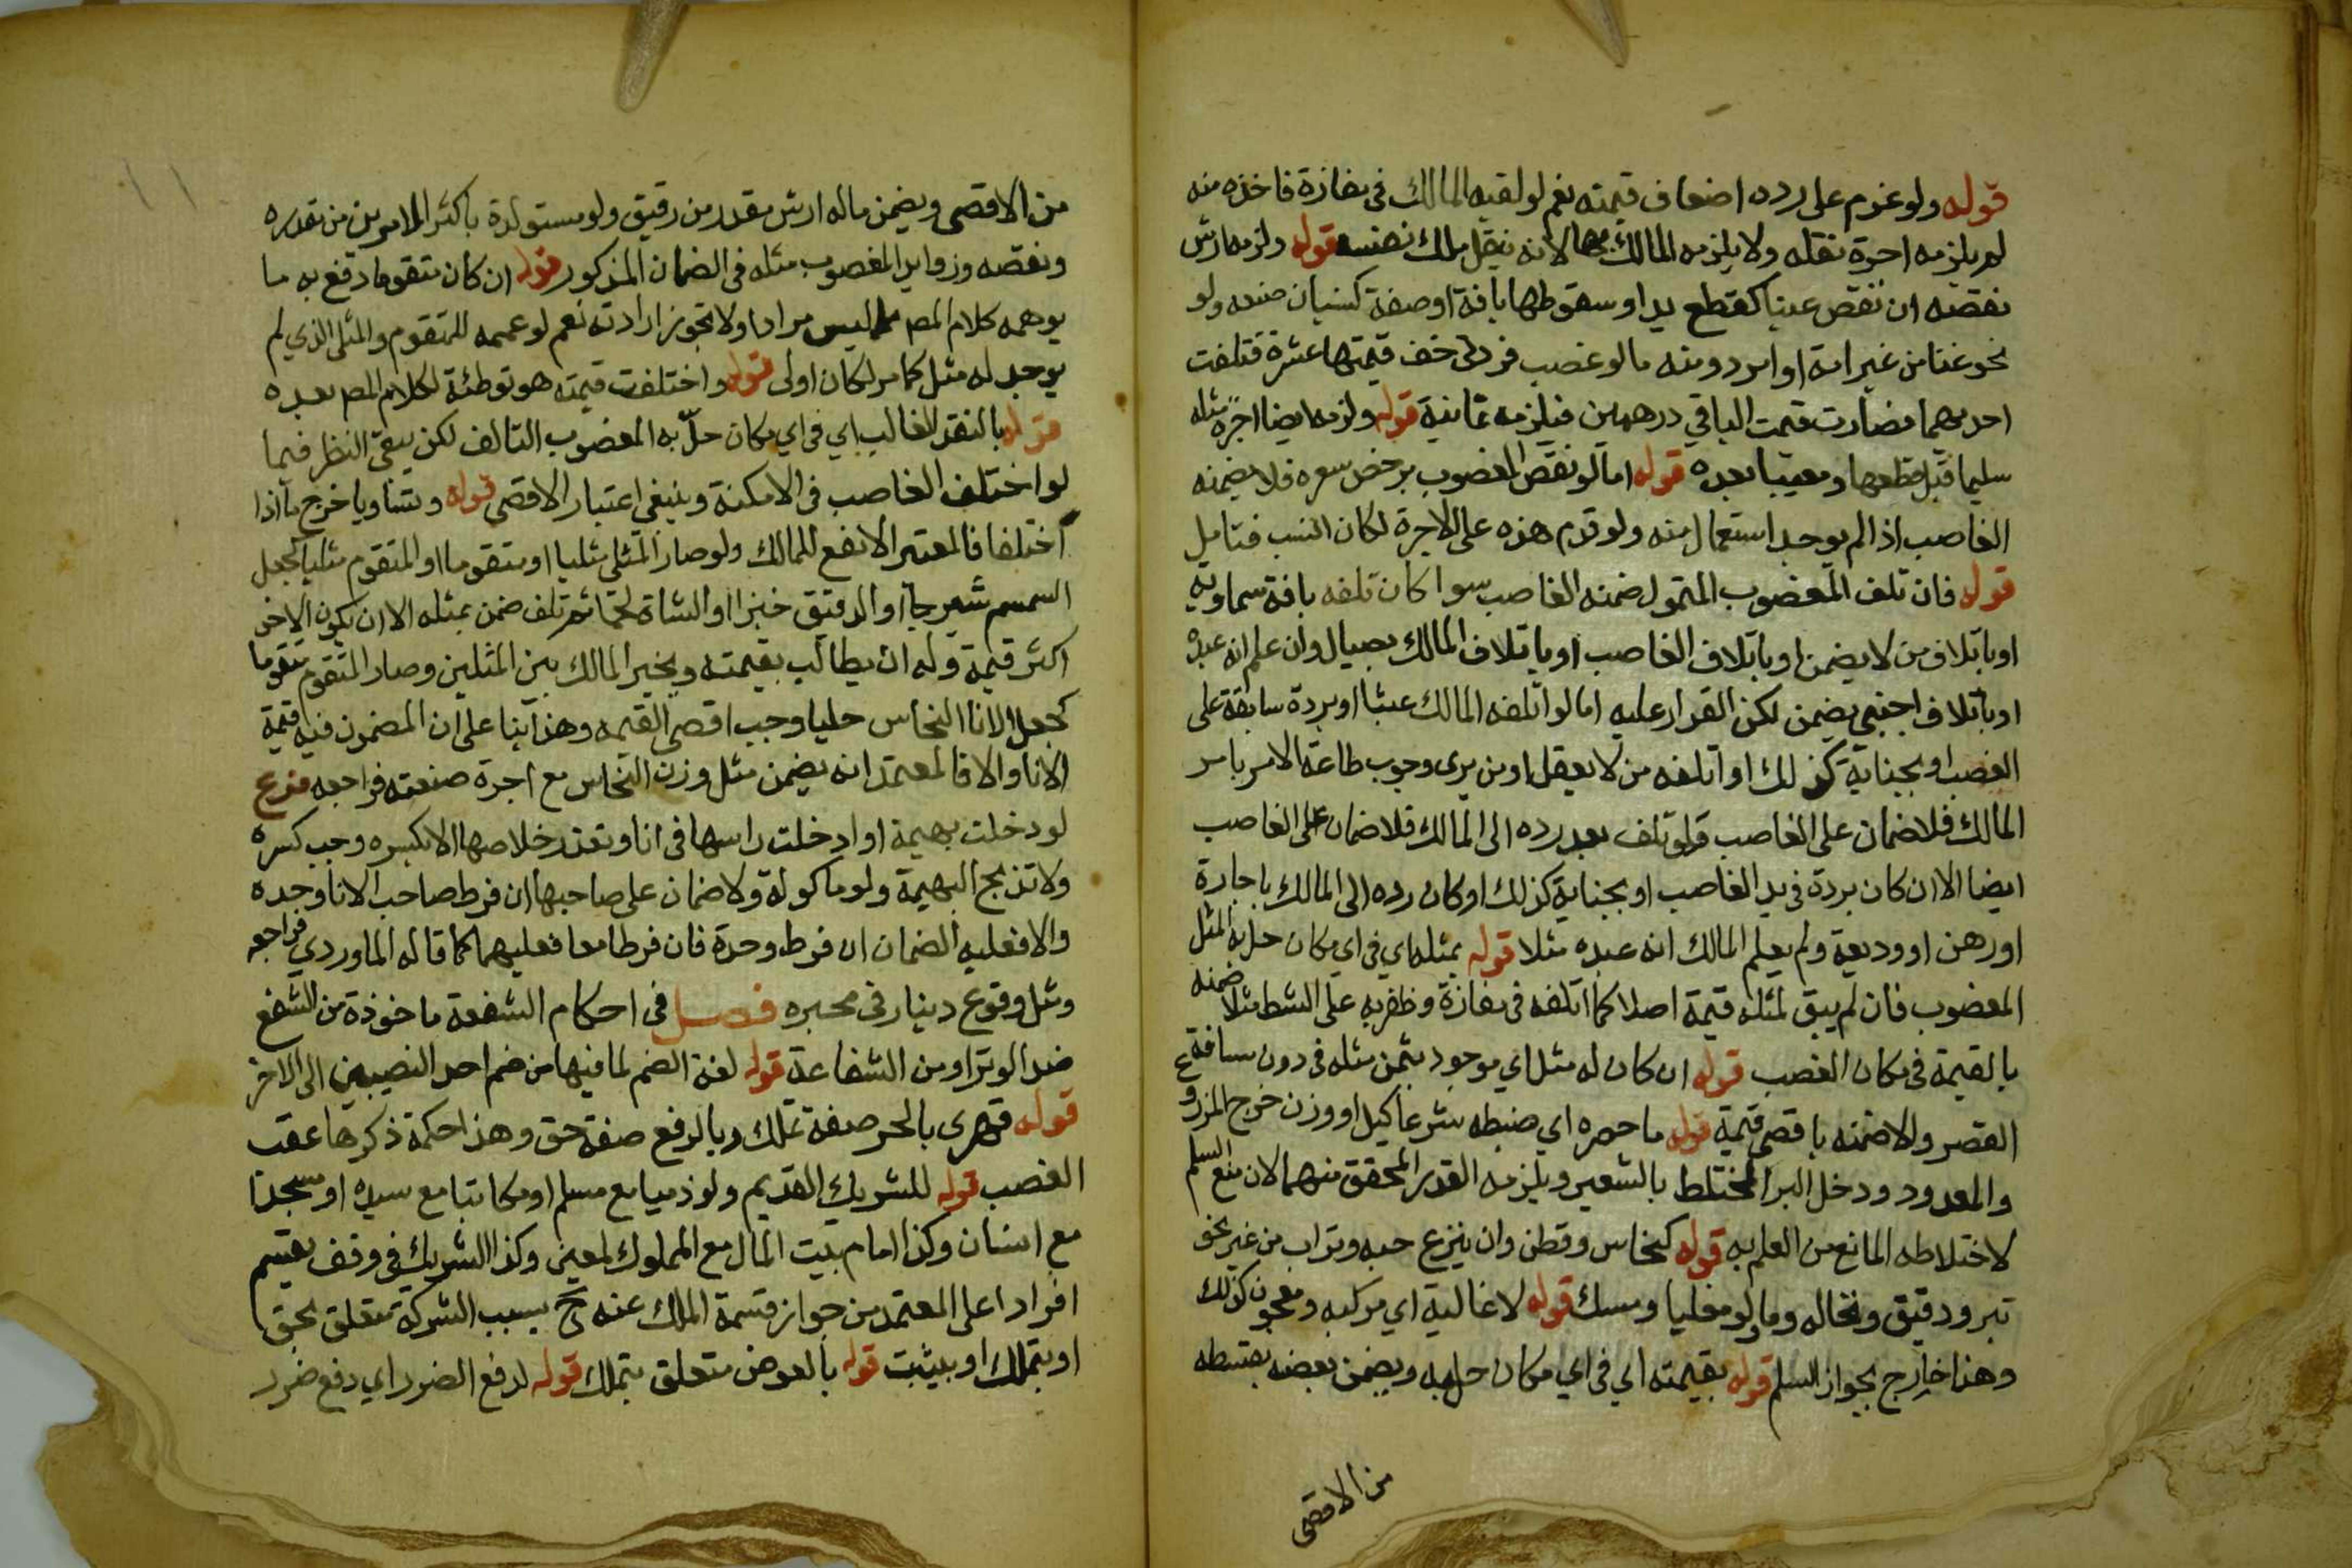 قوله ولو غرم على رده اضعاف قيمته نعم لو لقيه المالك في مفازة فاخذه منه
لم يلزمه اجرة نقله ولا يلزمه المالك بها لانه ينقل ملك نفسه قوله ولزمه ارش
نقصه ان نقص عينا كقطع يد او سقوطها بافة او صفة كنسيان صنعه ولو
نحو غنا من غير امة او امرد ومنه ما لو غصب فردتى خف قيمتها عشرة فتلفت
احديهما فصارت قيمت الباقي درهمين فيلزمه ثمانية قوله ولزمه ايضا اجرة مثله
سليما قبل قطعها ومعيبا بعده قوله اما لو نقص المغصوب برخص سعره فلا يضمنه
الغاصب اذا لم يوجد استعمال منه ولو قدم هذه على الاجرة لكان انسب فتامل
قوله فان تلف المغصوب المتمول ضمنه الغاصب سوا كان تلفه بافة سماوية
او باتلاف من لا يضمن او باتلاف الغاصب او باتلاف المالك بصيال وان علم انه عبده
او باتلاف اجنبي يضمن لكن القرار عليه اما لو اتلفه المالك عبثا او بردة سابقة على
الغصب او بجناية كذلك او اتلفه من لا يعقل او من يرى وجوب طاعة الامر بامر
المالك فلا ضمان على الغاصب ولو تلف بعد رده الى المالك فلا ضمان على الغاصب
ايضا الا ان كان بردة في يد الغاصب او بجناية كذلك او كان رده الى المالك باجارة
او رهن او وديعة ولم يعلم المالك انه عبده مثلا قوله بمثله اي في اي مكان حل به المثل
المغصوب فان لم يبق لمثله قيمة اصلا كما اتلفه في مفازة وظفر به على الشط مثلا ضمنه
بالقيمة في مكان الغصب قوله ان كان له مثل اي موجود بثمن مثله في دون مسافة
القصر والا ضمنه باقصى قيمة قوله ما حصره اي ضبطه شرعا كيل او وزن خرج المزروع
والمعدود ودخل البر المختلط بالشعير ويلزمه القدر المحقق منهما لان منع السلم
لاختلاطه المانع من العلم به قوله كنحاس وقطن وان ينزع حبه وتراب من غير نحو
تبر ودقيق ونخاله وما ولو مغليا ومسك قوله لا غالية اي مركبه ومعجون كذلك
وهذا خارج بجواز السلم قوله بقيمته اي في اي مكان حل به ويضمن بعضه بقسطه
من الاقصى
من الاقصى ويضمن ماله ارش مقدر من رقيق ولو مستولدة باكثر الامرين من مقدره
ونقصه وزوايد المغصوب مثله في الضمان المذكور قوله ان كان متقوما دفع به ما
يوهمه كلام المص مما ليس مرادا ولا تجوز ارادته نعم لو عممه للمتقوم والمثلي الذي لم
يوجد له مثل كما مر لكان اولى قوله واختلفت قيمته هو توطئة لكلام المص بعده
قوله بالنقد الغالب اي في اي مكان حلّ به المغصوب التالف لكن يبقى النظر فيما
لو اختلف الغاصب في الامكنة وينبغي اعتبار الاقصى قوله وتساويا خرج ما اذا
اختلفا فالمعتبر الانفع للمالك ولو صار المثلي مثليا او متقوما او المتقوم مثليا كجعل
السمسم شيرجا او الدقيق خبزا او الشاة لحما ثم تلف ضمن بمثله الا ان يكون الاخر
اكثر قيمة وله ان يطالب بقيمته ويخير المالك بين المثلين وصار المتقوم متقوما
كجعل الانا النحاس حليا وجب اقصى القيمه وهذا بنا على ان المضمون فيه قيمة
الانا والا فالمعتمد انه يضمن مثل وزن النحاس مع اجرة صنعته فراجعه فرع
لو دخلت بهيمة او ادخلت راسها في انا وتعذر خلاصها الا بكسره وجب كسره
ولا تذبح البهيمة ولو ماكولة ولا ضمان على صاحبها ان فرط صاحب الانا وحده
والا فعليه الضمان ان فرط وحده فان فرطا معا فعليهما كما قاله الماوردي فراجعه
ومثل وقوع دينار في محبره فصل في احكام الشفعة ماخوذة من الشفع
ضد الوتر او من الشفاعة قوله لغة الضم لما فيها من ضم احد النصيبين الى الاخر
قوله قهري بالجر صفة تملك وبالرفع صفة حق وهذا حكمة ذكرها عقب
الغصب قوله للشريك القديم ولو ذميا مع مسلم او مكاتبا مع سيده او مسجدا
مع انسان وكذا امام بيت المال مع المملوك لمعين وكذا الشريك في وقف يقسم
افرادا على المعتمد من جواز قسمة الملك عنه ح بسبب الشركة متعلق بحق
او بتملك او بيثبت قوله بالعوض متعلق بتملك قوله لدفع الضرر اي دفع ضرر